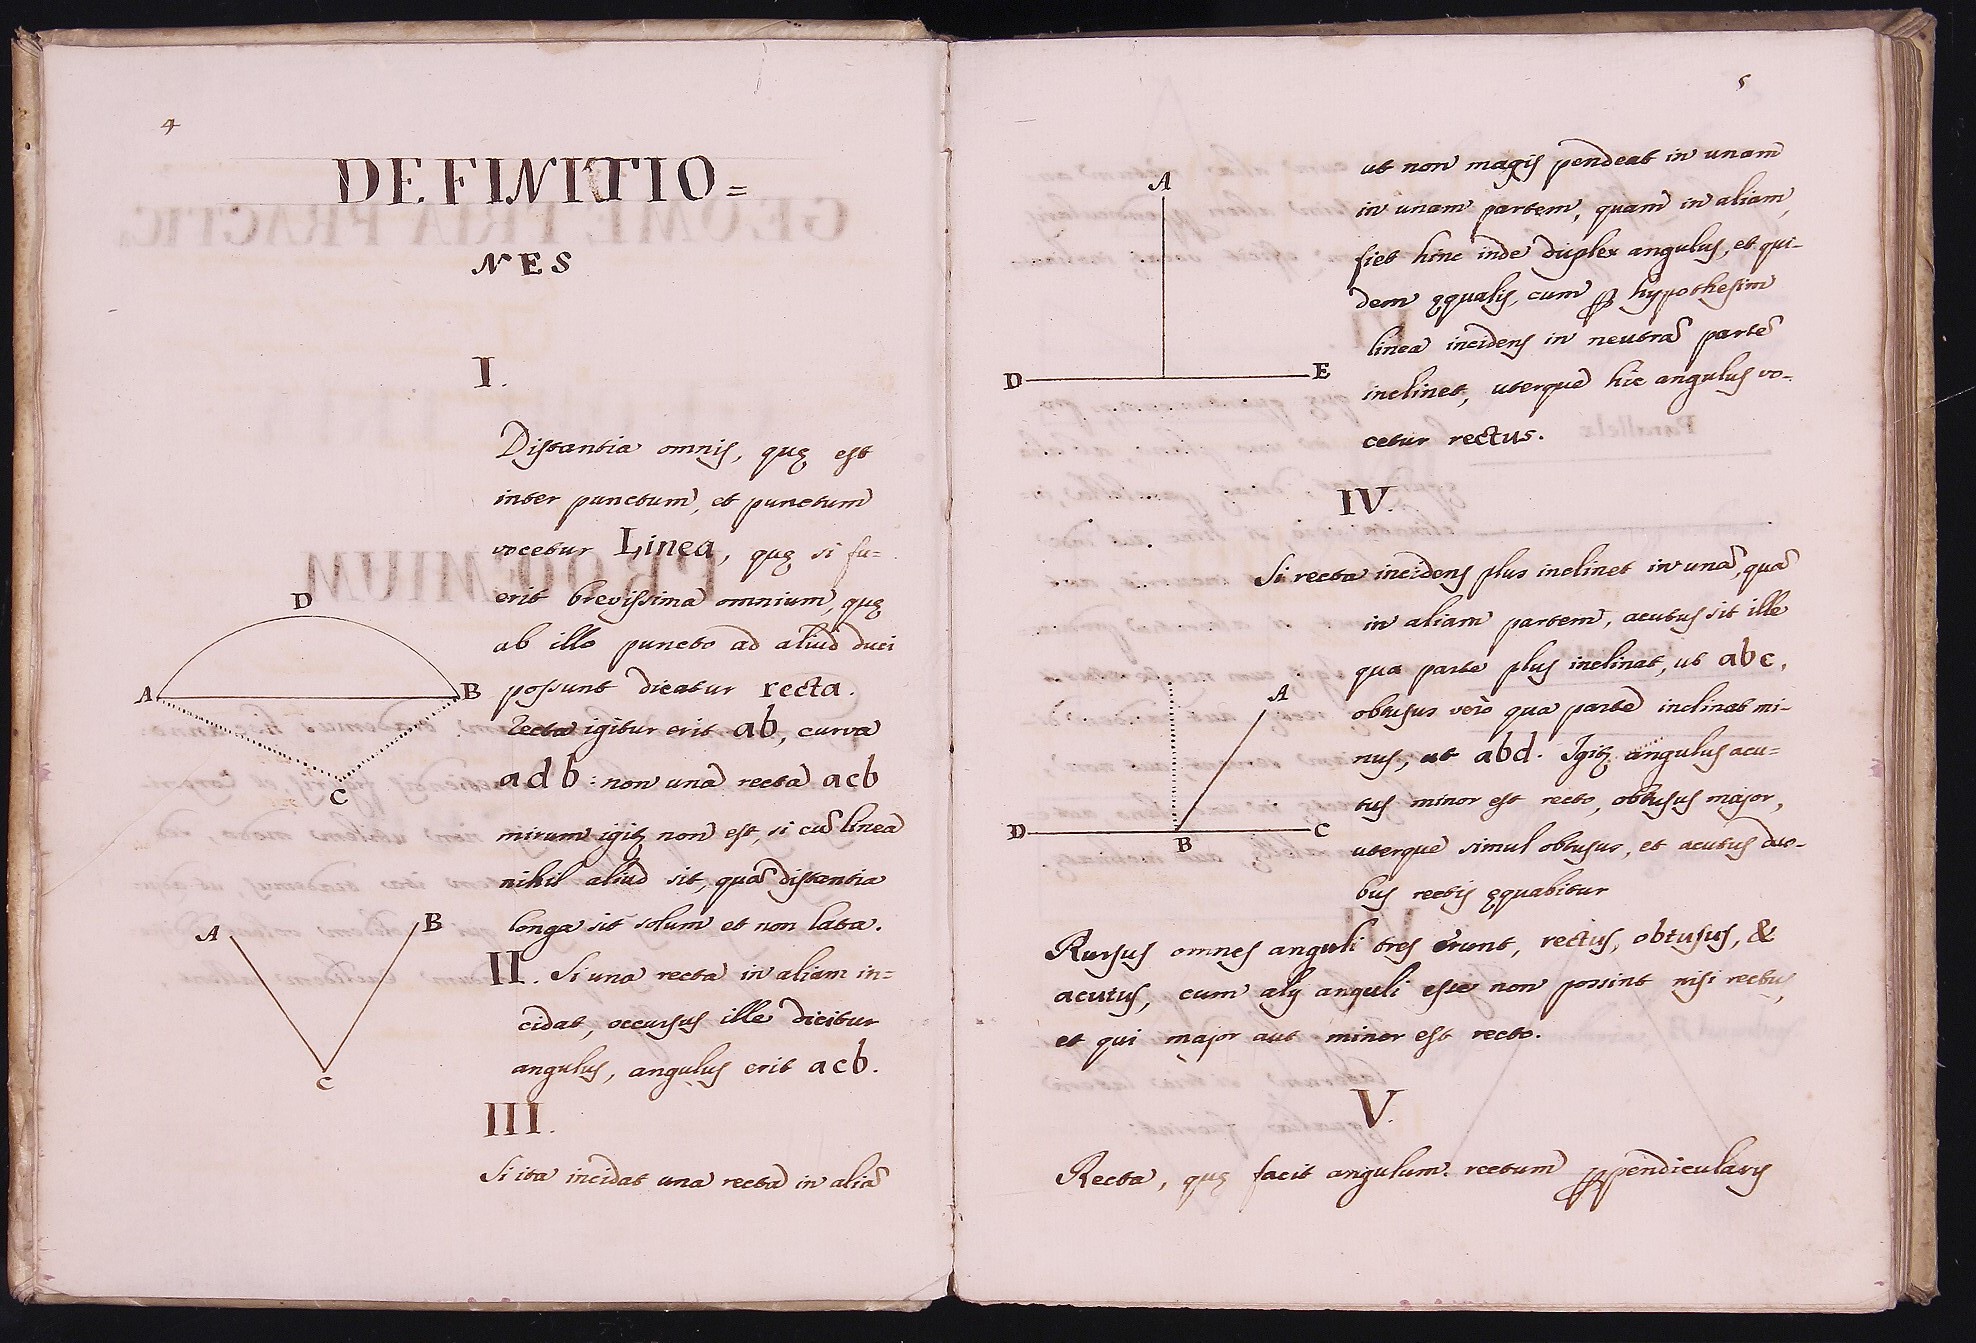 4
DEFINITIO=
NES
I.
Distantia omnis, quę est
inter punctum, et punctum
vocetur Linea, quę si fu=
erit brevissima omnium, quę
ab illo puncto ad aliud duci
possunt dicatur recta.
Recta igitur erit ab, curva
adb: non una recta acb
mirum igit₃ non est, si cũ linea
nihil aliud sit, quã distantia
longa sit solum et non lata.
D
A B
C
A B
C
II. Si una recta in aliam in=
cidat, occursus ille dicitur
angulus, angulus erit acb.
III.
Si ita incidat una recta in aliã
5
ut non magis pendeat in unam
in unam partem, quam in aliam,
fiet hinc inde duplex angulus, et qui-
dem ęqualis, cum ꝑ hypothesim
linea incidens in neutrã partẽ
inclinet, uterque hic angulus vo-
cetur rectus.
A
D E
IV.
Si recta incidens plus inclinet in unã, quã
in aliam partem, acutus sit ille
qua parte plus inclinat, ut abc,
obtusus verò qua parte inclinat mi-
nus, ut abd. Igit₃ angulus acu=
tus minor est recto, obtusus major,
uterque simul obtusus, et acutus duo-
bus rectis ęquabitur
A
D B C
Rursus omnes anguli tres erunt, rectus, obtusus, &
acutus, cum alij anguli esse non possint nisi rectus,
et qui major aut minor est recto.
V.
Recta, quę facit angulum rectum ꝑpendicularis